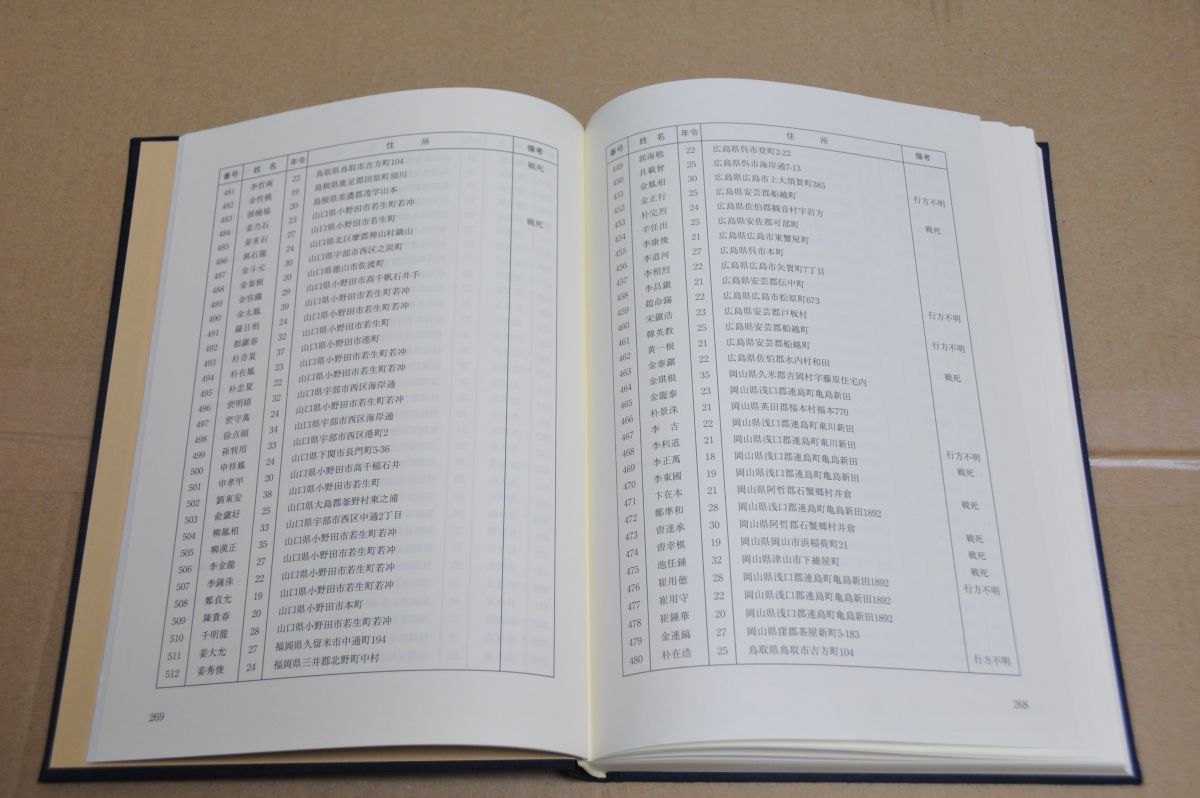 番号 姓名 年令 住所 備考
449 郭海勉 22 広島県呉市登町2-22
450 具載曾 25 広島県呉市海岸通7-13
451 金鳳相 30 広島県広島市上大須賀町385
452 金正行 25 広島県安芸郡船越町 行方不明
453 朴完烈 24 広島県佐伯郡観音村字岩方
454 辛任出 25 広島県安佐郡可部町 戦死
455 李康俊 21 広島県広島市東蟹屋町
456 李道河 27 広島県呉市本町
457 李相烈 22 広島県広島市矢賀町7丁目
458 李昌鎭 21 広島県安芸郡伝中町
459 趙命錫 22 広島県広島市松原町673
460 宋鎭浩 23 広島県安芸郡戸板村 行方不明
461 韓英教 25 広島県安芸郡船越町
462 黄一根 21 広島県安芸郡船越町 行方不明
463 金泰鎭 22 広島県佐伯郡水内村和田
464 金琪根 35 岡山県久米郡吉岡村字藤原住宅内 戦死
465 金龍泰 23 岡山県浅口郡連島町亀島新田
466 朴景洙 21 岡山県英田郡福本村福本770
467 李吉 22 岡山県浅口郡連島町東川新田
468 李利道 21 岡山県浅口郡連島町東川新田
469 李正萬 18 岡山県浅口郡連島町亀島新田 行方不明
470 李東國 19 岡山県浅口郡連島町亀島新田 戦死
471 卞在本 21 岡山県阿哲郡石蟹郷村井倉
472 鄭準和 28 岡山県浅口郡連島町亀島新田1892 戦死
473 曺逹承 30 岡山県阿哲郡石蟹郷村井倉
474 曺幸棋 19 岡山県岡山市浜稲荷町21 戦死
475 池任鍾 32 岡山県津山市下紺屋町 戦死
476 崔用徳 28 岡山県浅口郡連島町亀島新田1892 戦死
477 崔用守 22 岡山県浅口郡連島町亀島新田1892 行方不明
478 崔鐘華 20 岡山県浅口郡連島町亀島新田1892
479 金連鎬 27 岡山県窪郡茶屋新町5-183
480 朴在浩 25 鳥取県鳥取市吉方町104 行方不明
268
番号 姓名 年令 住所 備考
481 李哲雨 22 鳥取県鳥取市吉方町104 戦死
482 金性模 19 島根県鹿足郡田原町須川
483 張晩福 20 島根県美濃郡茂字山本
484 姜乃石 23 山口県小野田市若生町若冲
485 姜亥石 27 山口県小野田市若生町 戦死
486 郭石龍 24 山口県北巨摩郡神山村鍋山
487 金斗元 30 山口県宇部市西区之炭町
488 金釜根 20 山口県徳山市佐渡町
489 金容鐵 29 山口県小野田市高千帆石井手
490 金太鳳 39 山口県小野田市若生町若冲
491 羅日根 24 山口県小野田市若生町若冲
492 都鎭春 32 山口県小野田市若生町
493 朴奇夏 37 山口県小野田市港町
494 朴在鳳 23 山口県小野田市若生町若冲
495 朴忠夏 22 山口県小野田市若生町若冲
496 裵明嬉 32 山口県宇部市西区海岸通
497 裵守萬 24 山口県小野田市若生町若冲
498 徐点碩 34 山口県宇部市西区海岸通
499 孫判用 33 山口県宇部市西区港町2
500 申祥鳳 24 山口県下関市長門町5-36
501 申孝甲 20 山口県小野田市高千稲石井
502 劉東安 38 山口県小野田市若生町
503 兪鎭好 25 山口県大島郡釜野村東之浦
504 柳鳳相 33 山口県宇部市西区中通2丁目
505 柳漢正 35 山口県小野田市若生町若冲
506 李金龍 27 山口県小野田市若生町若冲
507 李鍾洙 22 山口県小野田市若生町若冲
508 鄭貞允 19 山口県小野田市若生町若冲
509 陳貴春 20 山口県小野田市本町
510 千明龍 28 山口県小野田市若生町若冲
511 姜大允 27 福岡県久留米市中通町194
512 姜秀俊 24 福岡県三井郡北野町中村
269